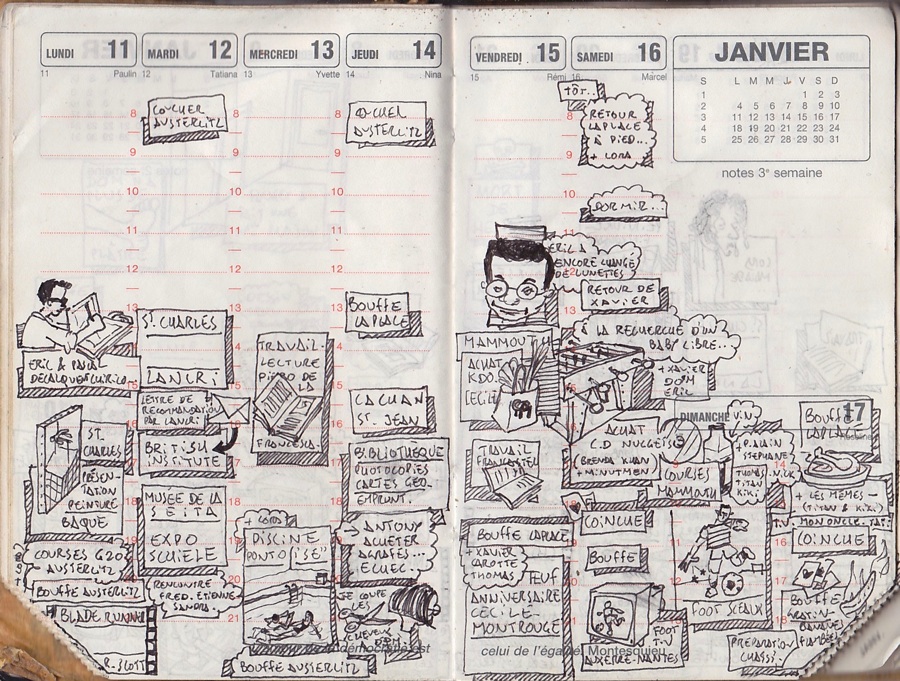 LUNDI 11
11 Paulin
MARDI 12
12 Tatiana
MERCREDI 13
13 Yvette
JEUDI 14
14 Nina
VENDREDI 15
15 Rémi
SAMEDI 16
16 Marcel
JANVIER
S L M M J V S D
1 1 2 3
2 4 5 6 7 8 9 10
3 11 12 13 14 15 16 17
4 18 19 20 21 22 23 24
5 25 26 27 28 29 30 31
notes 3e semaine
ERIC & PASCAL
ST.
CHARLES
PRÉSEN-
TATION
PEINTURE
BAQUE
COURSES G20
AUSTERLITZ
BOUFFE AUSTERLITZ
BLADE RUNNER
R. SCOTT
COUCHER
AUSTERLITZ
ST. CHARLES
LANCRI
LETTRE DE
RECOMMANDATION
PAR LANCRI
BRITISH
INSTITUTE
MUSEE DE LA
SEITA
EXPO
SCHIELE
RENCONTRE
FRED. ETIENNE
SANDRA.
TRAVAIL
LECTURE
PIERO DE
LA
FRANCESCA.
PISCINE
PONTOISE
BOUFFE AUSTERLITZ
AUSTERLITZ
BOUFFE
LAPLACE
ST. JEAN
BIBLIOTHEQUE
PHOTOCOPIES
CARTES GEO.
EMPRUNT.
ANTONY
ACHETER
AGRAFES...
ECHEC.
JE COUPE
LES
CHEVEUX
démocratie est
TÔT..
RETOUR
LAPLACE
A PIED...
+ LORA
DORMIR...
ERIC A
ENCORE CHANGÉ
DE LUNETTES
RETOUR DE
XAVIER
A LA RECHERCHE D'UN
BABY LIBRE...
+ XAVIER
DOM
ERIC
MAMMOUTH
ACHAT
KDO.
CECILE
TRAVAIL
BOUFFE LAPLACE
+ XAVIER
CAROTTE
THOMAS
TEUF
ANNIVERSAIRE
CECILE-
MONTROUGE
ACHAT
C.D NUGGETS
(BRENDA KHAN
+ MINUTMEN)
COINCHE
BOUFFE
FOOT
AUXERRE-NANTES
celui de l'égalité. Montesquieu
DIMANCHE 17
VIN
COURSES
MAMMOUTH
P. ALAIN
STEPHANE
THOMAS
TITAN
KIKI
BOUFFE
LAPLACE
+ LES MÊMES -
(TITAN & KIKI)
MON ONCLE. TATI
COINCHE
FOOT SCEAUX
BOUFFE
BANANES
FLAMBÉES
PREPARATION